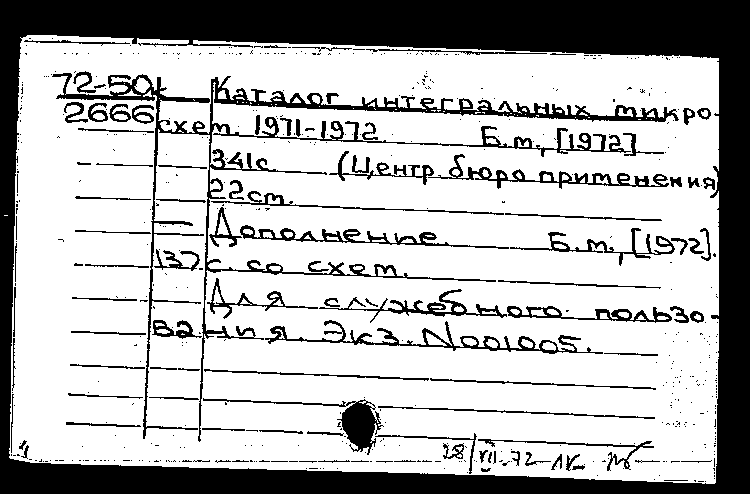 72-50k Каталог интегральных микро-
2666 схем. 1971-1972 Б.м., [1972]
341с (Центр бюро применения)
22cm.
— Дополнение. Б.м., [1972].
137 с. со схем.
Для служебного пользо-
вания. Экз. N001005.
4 28/VII.72